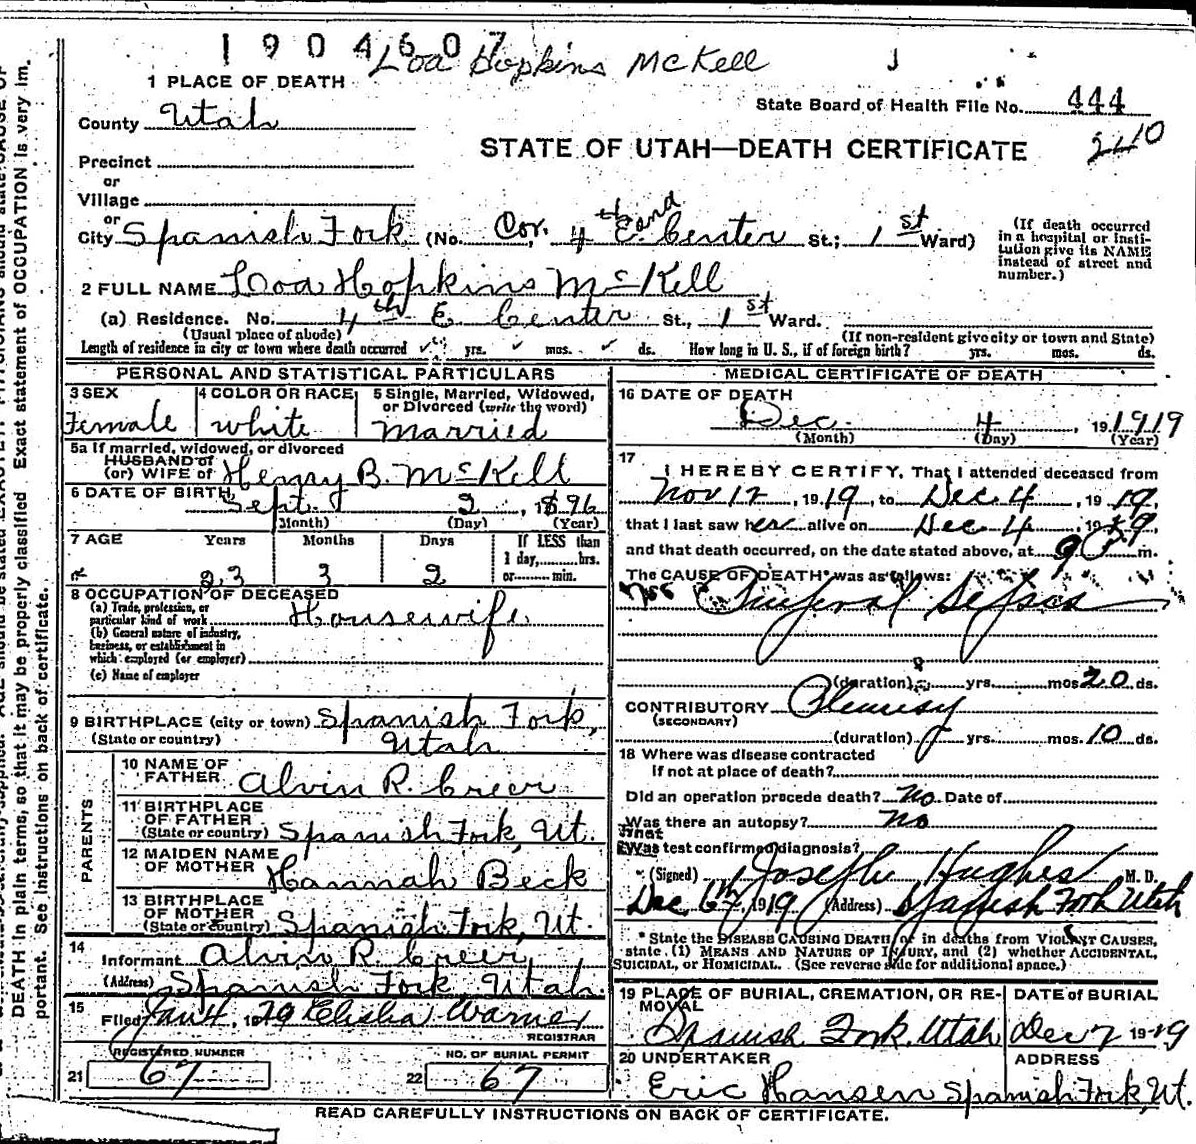 1904607
Loa Hopkins McKell
1 PLACE OF DEATH
State Board of Health File No. 444
County Utah
240
STATE OF UTAH—DEATH CERTIFICATE
Precinct
or
Village
or
City Spanish Fork (No. Cor. 4th E. and Center St.; 1st Ward)
(If death occurred in a hospital or institution give its NAME instead of street and number.)
2 FULL NAME Loa Hopkins McKell
(a) Residence. No. 4th E Center St., 1st Ward.
(Usual place of abode) (If non-resident give city or town and State)
Length of residence in city or town where death occurred yrs. mos. ds. How long in U. S., if of foreign birth? yrs. mos. ds.
PERSONAL AND STATISTICAL PARTICULARS
3 SEX
Female
4 COLOR OR RACE
white
5 Single, Married, Widowed, or Divorced (write the word)
Married
5a If married, widowed, or divorced
HUSBAND of
(or) WIFE of Henry B. McKell
6 DATE OF BIRTH Sept. 2, 1896
(Month) (Day) (Year)
7 AGE Years Months Days If LESS than
1 day, hrs.
or min.
23 3 2
8 OCCUPATION OF DECEASED
(a) Trade, profession, or particular kind of work Housewife
(b) General nature of industry, business, or establishment in which employed (or employer)
(c) Name of employer
9 BIRTHPLACE (city or town) Spanish Fork,
(State or country) Utah
PARENTS
10 NAME OF FATHER Alvin R. Creer
11 BIRTHPLACE OF FATHER
(State or country) Spanish Fork, Ut.
12 MAIDEN NAME OF MOTHER Hannah Beck
13 BIRTHPLACE OF MOTHER
(State or country) Spanish Fork, Ut.
14
Informant Alvin R. Creer,
(Address) Spanish Fork Utah
15
Filed Jan 4, 1920 Elisha Warner
REGISTRAR
REGISTERED NUMBER
21 67
NO. OF BURIAL PERMIT
22 67
MEDICAL CERTIFICATE OF DEATH
16 DATE OF DEATH
Dec. 4, 191919
(Month) (Day) (Year)
17
I HEREBY CERTIFY, That I attended deceased from
Nov 12, 1919, to Dec. 4, 1919,
that I last saw her alive on Dec 4, 1919
and that death occurred, on the date stated above, at 9 P m.
The CAUSE OF DEATH* was as follows:
Puerperal Sepsis
(duration) yrs. mos. 20 ds.
CONTRIBUTORY Pleurisy
(SECONDARY)
(duration) yrs. mos. 10 ds.
18 Where was disease contracted
If not at place of death?
Did an operation precede death? No Date of
Was there an autopsy? No
What test confirmed diagnosis?
(Signed) Joseph Hughes M. D.
Dec 6th, 1919 (Address) Spanish Fork Utah
*State the DISEASE CAUSING DEATH, or in deaths from VIOLENT CAUSES,
state (1) MEANS AND NATURE OF INJURY, and (2) whether ACCIDENTAL,
SUICIDAL, or HOMICIDAL. (See reverse side for additional space.)
19 PLACE OF BURIAL, CREMATION, OR REMOVAL
Spanish Fork, Utah
DATE of BURIAL
Dec 7 1919
20 UNDERTAKER
Eric Hansen
ADDRESS
Spanish Fork, Ut.
READ CAREFULLY INSTRUCTIONS ON BACK OF CERTIFICATE.
DEATH in plain terms, so that it may be properly classified. Exact statement of OCCUPATION is very im-
portant. See instructions on back of certificate.